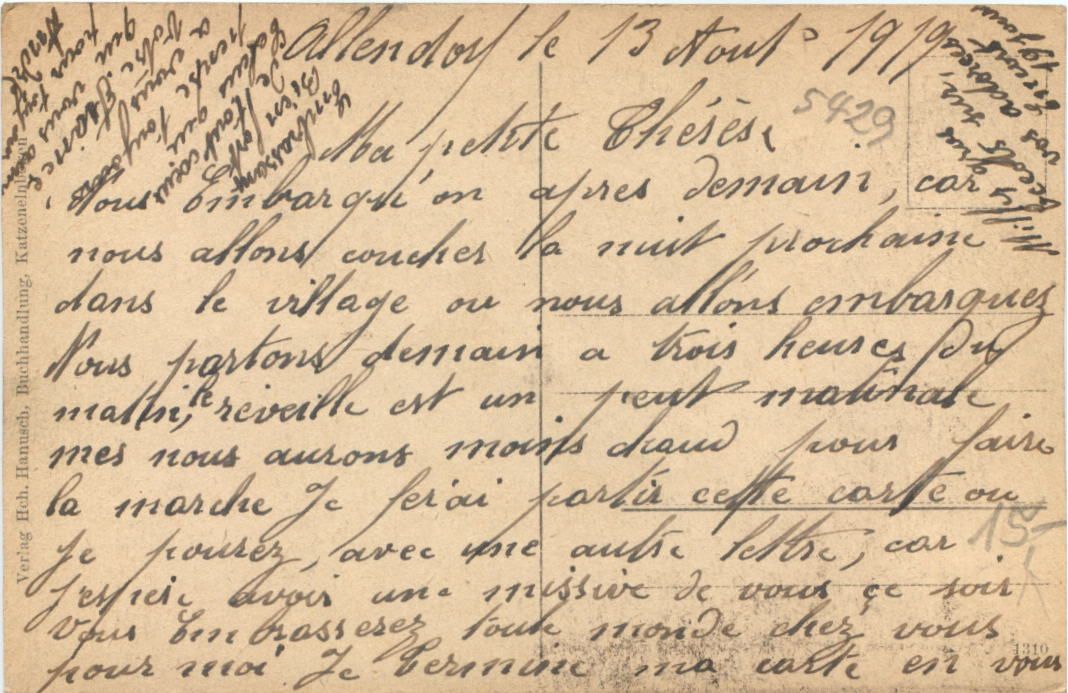 Allendorf le 13 Aout 1919
5429
Ma petite Thérèse
Nous Embarqu'on apres demain, car
nous allons coucher la nuit prochaine
dans le village ou nous allons embarquez
Nous partons demain a trois heures du
matin, le reveille est un peut matinale
mes nous aurons moins chaud pour faire
la marche Je ferai partir cette carte ou
je pourez, avec une autre lettre, car
15,-
J'espere avoir une missive de vous ce soir
Vous Embrasserez toute monde chez vous
pour moi Je termine ma carte en vous
Embrassant
Bien fort
de tout cœur
pense que toujours
a vous
votre
que
pour vous
Mille gros
sur
vos adorés
1310
Verlag Hch. Hanusch, Buchhandlung, Katzenelnbogen